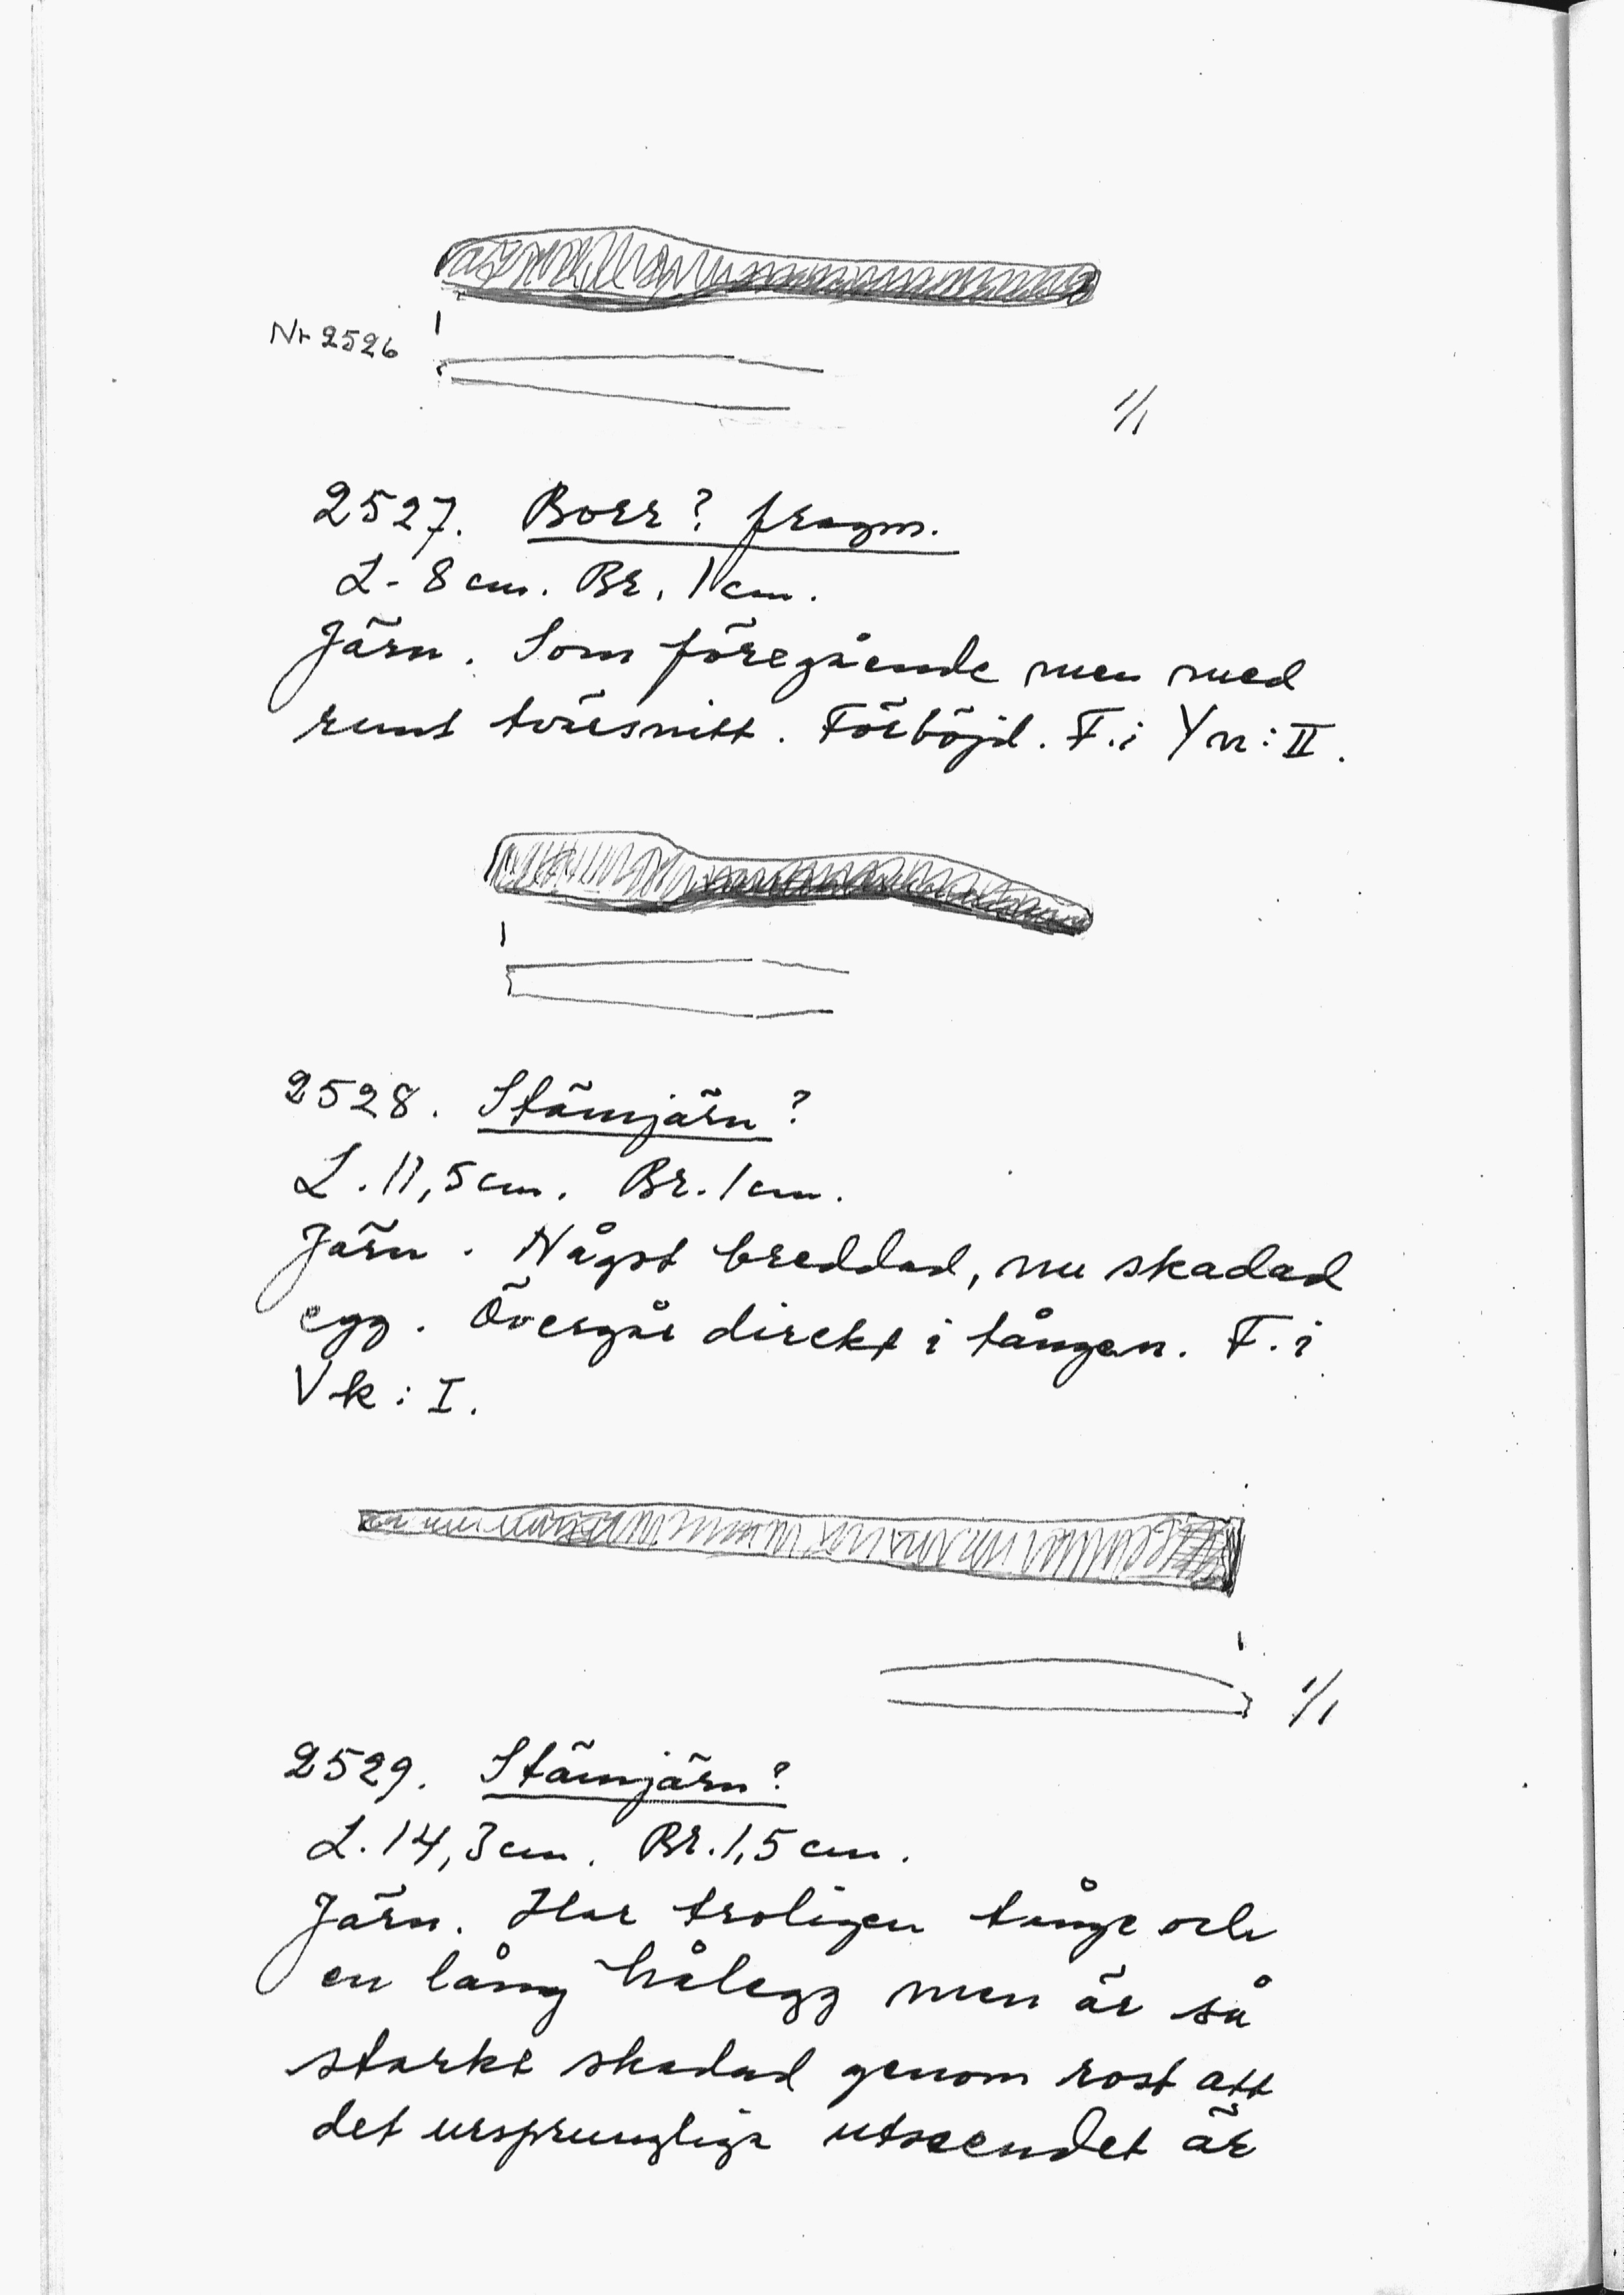 Nr 2526
1/1
2527. Borr? fragm.
L. 8 cm. Br. 1 cm.
Järn. Som föregående men med
runt tvärsnitt. Förböjd. F. i Yn: II.
2528. Stämjärn?
L. 11,5 cm. Br. 1 cm.
Järn. Något breddad, nu skadad
egg. Övergår direkt i tången. F. i
Vk: I.
1/1
2529. Stämjärn?
L. 14,3 cm. Br. 1,5 cm.
Järn. Har troligen tånge och
en lång hålegg men är så
starkt skadad genom rost att
det ursprungliga utseendet är